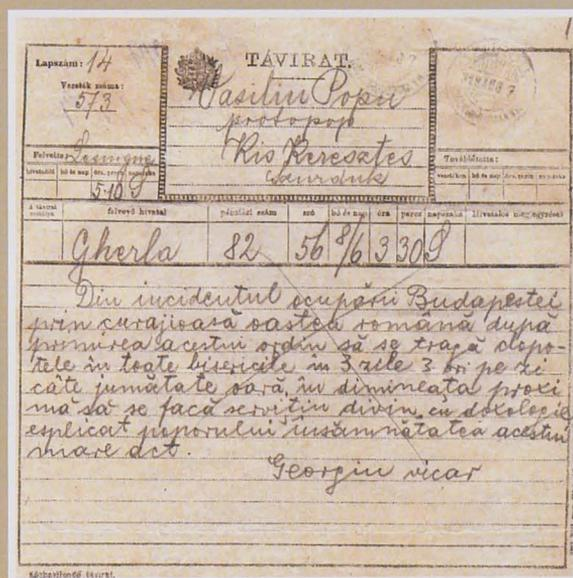 Lapszám: 14
TÁVIRAT.
Vezeték száma:
573
Vasiliu Popu
protopop
Kis Keresztes
Szurduk
Felvette:
Továbbította:
5·10 S
felvevő hivatal
pénztári szám
szó
hó és nap
óra
perc
napszaka
Gherla
82
56
8/6
3
30
S
Din incidentul ocupării Budapestei
prin curajioasă oastea română după
primirea acestui ordin să se tragă clopo-
tele în toate bisericile în 3 zile 3 ori pe zi
câte jumătate oară, în dimineața proxi
mă să se facă servițiu divin, cu doxologie
esplicat poporului însămnătatea acestui
mare act.
Georgiu vicar
Kézbesítendő távirat.